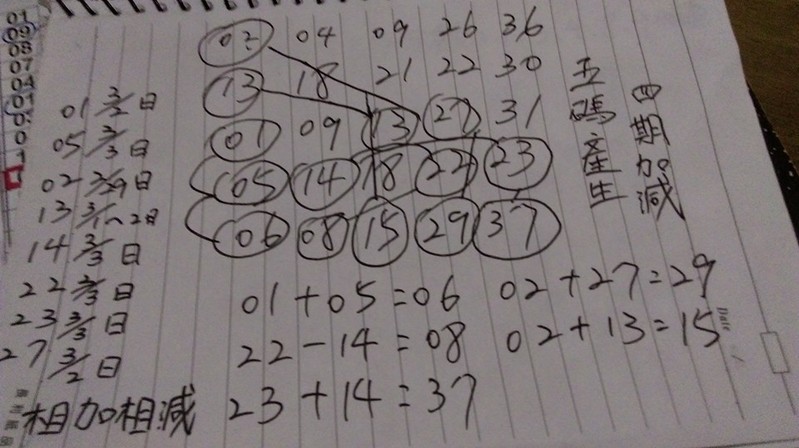 01
09
08
07
04
01
02 04 09 26 36
13 18 21 22 30
01 09 13 27 31
05 14 18 22 23
06 08 15 29 37
五碼產生
四期加減
01 3/2日
05 3/3日
02 2/29日
13 3/1~2日
14 3/3日
22 3/3日
23 3/3日
27 3/2日
01+05=06 02+27=29
22-14=08 02+13=15
相加相減 23+14=37
Date